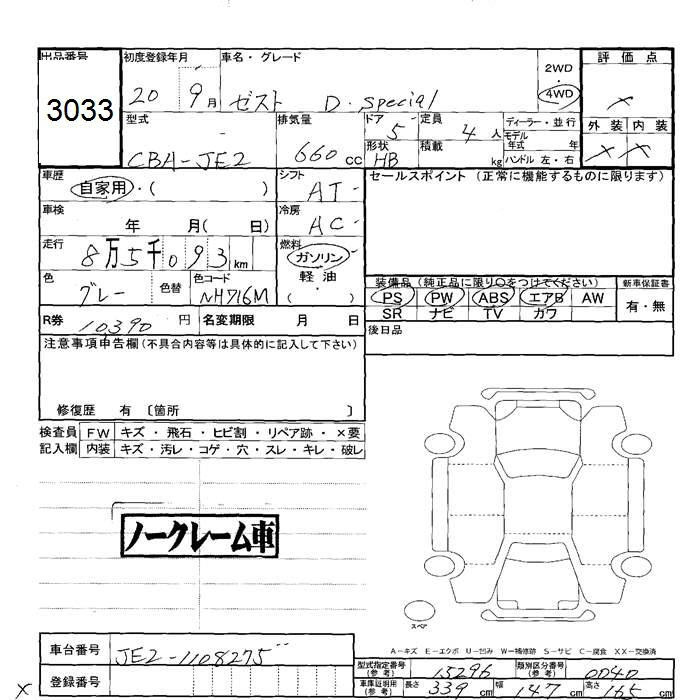 出品番号 初度登録年月 車名・グレード 2WD ・ 4WD 評価点
3033 20 9月 ゼスト D・special ×
型式 排気量 ドア 定員 ディーラー・並行 外装 内装
CBA-JE2 660cc 5 4人 モデル年式 年 × ×
形状 HB 積載 kg ハンドル 左・右
車歴 自家用・( ) シフト AT セールスポイント (正常に機能するものに限ります)
車検 年 月( 日) 冷房 AC
走行 8万5千093km 燃料 ガソリン・軽油・( )
色 グレー 色替 色コード NH716M
装備品 (純正品に限り○をつけてください) 新車保証書
PS PW ABS エアB AW 有・無
SR ナビ TV カワ
R券 10390円 名変期限 月 日 後日品
注意事項申告欄 (不具合内容等は具体的に記入して下さい)
修復歴 有 〔箇所 〕
検査員 FW キズ・飛石・ヒビ割・リペア跡・×要
記入欄 内装 キズ・汚レ・コゲ・穴・スレ・キレ・破レ
ノークレーム車
スペア
A－キズ E－エクボ U－凹み W－補修跡 S－サビ C－腐食 XX－交換済
車台番号 JE2-1108275
型式指定番号(参考) 15296 類別区分番号(参考) 0040
登録番号
車庫証明用(参考) 長さ 339cm 幅 147cm 高さ 165cm
×